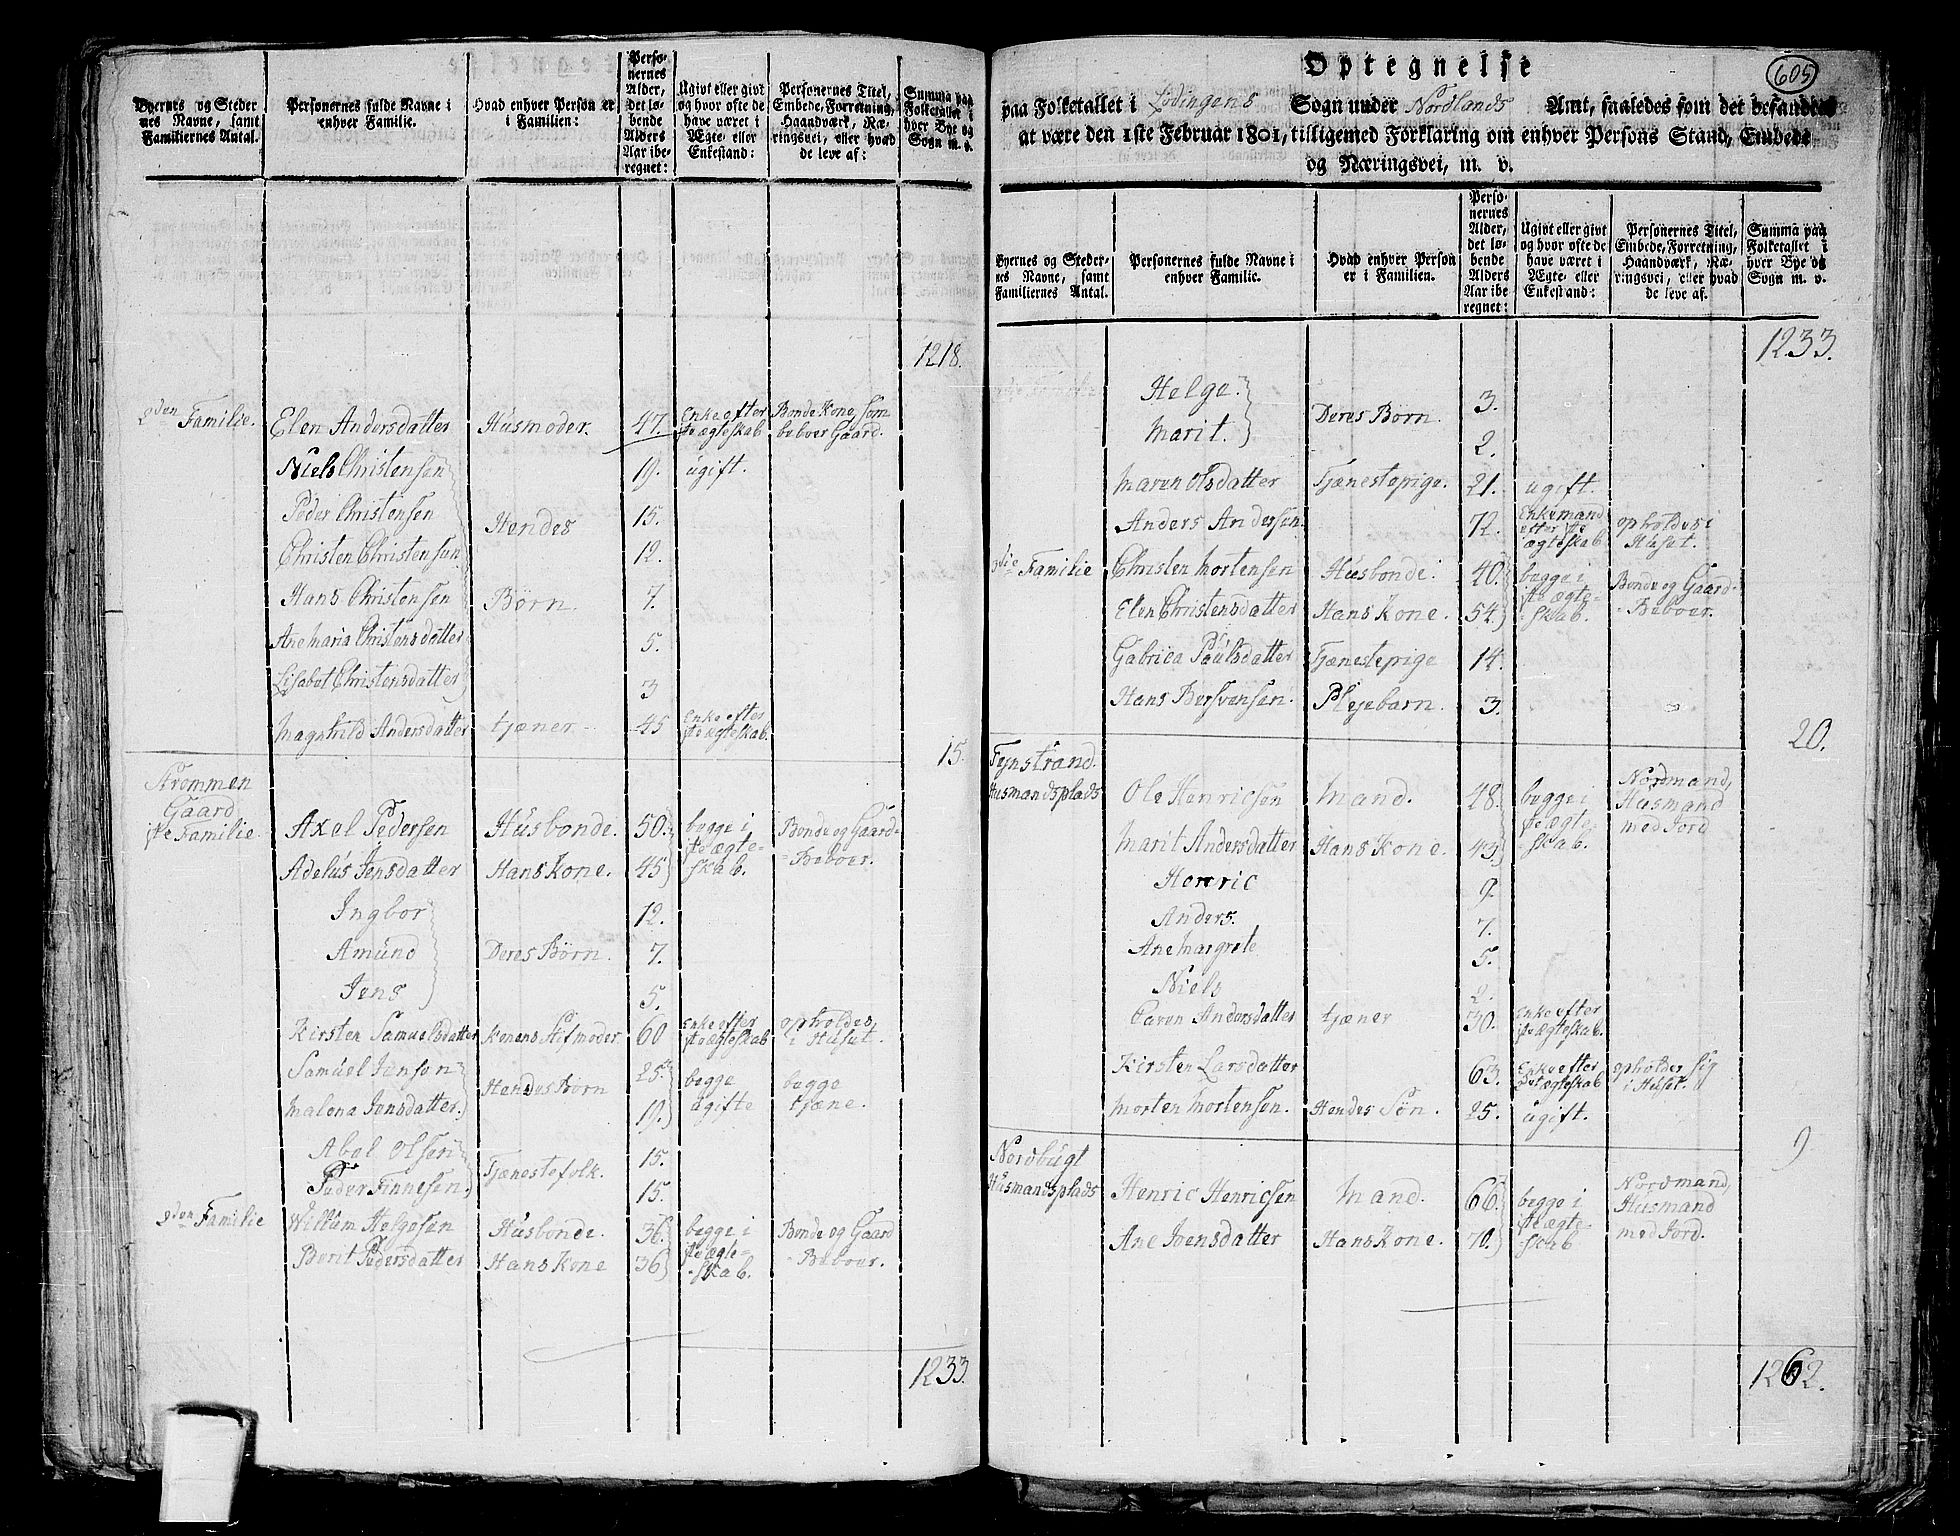 Byernes og Steder
nes Navne, samt
Familiernes Antal.
Personernes fulde Navne i
enhver Familie.
Hvad enhver Person er
i Familien:
Perso-
nernes
Alder,
det lø-
bende
Alders
Aar ibe-
regnet:
Ugivt eller givt
og hvor ofte de
have været i
Ægte- eller
Enkestand:
Personernes Titel,
Embede, Forretning,
Haandværk, Næ-
ringsvei, eller hvad
de leve af:
Summa paa
Folketallet i
hver Bye og
Sogn m. v.
1218.
2den Familie. Elen Andersdatter Huusmoder. 47. Enke efter 1te ægteskab Bonde Kone, som beboer Gaard.
Niels Christensen 19. ugift.
Peder Christensen 15.
Hendes
Christen Christensen 12.
Hans Christensen Børn. 7.
Ane Maria Christensdatter 5.
Lisabet Christensdatter 3
Magnhild Andersdatter tjæner 45 Enke efter 1te ægteskab.
15.
Strømmen
Gaard
1te Familie. Axel Pedersen Husbonde. 50. begge i 1te ægte-skab. Bonde og Gaard-Beboer.
Adelus Jensdatter Hans Kone. 45
Ingbor 12.
Amund Deres Børn. 7.
Jens 5.
Kirsten Samuelsdatter Konens Stifmoder 60 Enke efter 1te ægteskab opholdes i Huset.
Samuel Jensen 25. begge begge
Hendes Børn
Malena Jensdatter. 19. ugifte tjæne.
Abel Olsen 15.
Tjænestefolk.
Peder Finnesen 15.
2den Familie Willum Helgesen Husbonde. 36. begge i 1te ægte-skab. Bonde og Gaard Beboer.
Berit Pedersdatter Hans Kone 36
1233.
605
Optegnelse
paa Folketallet i Lødingens Sogn under Nordlands Amt, saaledes som det befandtes
at være den 1ste Februar 1801, tilligemed Forklaring om enhver Persons Stand, Embede
og Næringsvei, m. v.
Byernes og Steder-
nes Navne, samt
Familiernes Antal.
Personernes fulde Navne i
enhver Familie.
Hvad enhver Person
er i Familien.
Perso-
nernes
Alder,
det lø-
bende
Alders
Aar ibe-
regnet:
Ugivt eller givt
og hvor ofte de
have været i
Ægte- eller
Enkestand:
Personernes Titel,
Embede, Forretning,
Haandværk, Næ-
ringsvei, eller hvad
de leve af.
Summa paa
Folketallet i
hver Bye og
Sogn m. v.
1233.
Helge. 3.
Deres Børn.
Marit. 2.
Maren Olsdatter Tjænestepige. 21. ugift.
Anders Andersen. 72. Enkemand efter 1te ægteskab opholdes i Huset.
3die Familie Christen Mortensen Husbonde. 40. begge i 1te ægte-skab. Bonde og Gaard-Beboer.
Elen Christensdatter Hans Kone. 54.
Gabriea Paulsdatter Tjænestepige 14.
Hans Bersvensen. Plejebarn. 3.
20.
Fynstrand.
Husmandsplads Ole Henricsen Mand. 48. begge i 1te ægt-skab. Nordmand, Husmand med Jord
Marit Andersdatter Hans Kone. 43
Henric 9.
Anders. 7.
Ane Margrete 5.
Niels 2.
Caren Andersdatter tjæner 30. Enke efter 1te ægteskab.
Kirsten Larsdatter 63. Enke efter 1te ægteskab opholder sig i Huset.
Morten Mortensen. Hendes Søn. 25. ugift.
9
Nordbugt
Husmandsplads Henric Henricsen Mand. 66. begge i 1te ægte-skab Nordmand, Husmand med Jord.
Ane Joensdatter Hans Kone. 70.
1262.